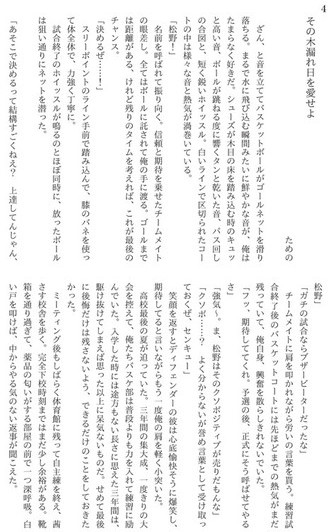 4
その木漏れ日を愛せよ
ための
ざん、と音を立ててバスケットボールがゴールネットを滑り
落ちる。まるで水に飛び込む瞬間みたいに鮮やかな音が、俺は
たまらなく好きだ。シューズが木目の床を踏み込む時のキュッ
と高い音、ボールが跳ねる度に響くタンと乾いた音、パス回し
の合図と、短く鋭いホイッスル。白いラインで区切られたコー
トの中は様々な音と熱気が渦巻いている。
「松野！」
名前を呼ばれて振り向く。信頼と期待を乗せたチームメイト
の眼差し、全てはボールに託されて俺の手に渡る。ゴールまで
は距離がある。けれど残りのタイムを考えれば、これが最後の
チャンス。
「決めるぜ……！」
スリーポイントのライン手前で踏み込んで、膝のバネを使っ
て体全体で、力強く丁寧に。
試合終了のホイッスルが鳴るのとほぼ同時に、放ったボール
は狙い通りにネットを潜った。
「あそこで決めるって結構すごくねえ？　上達してんじゃん、
松野」
「ガチの試合ならブザービーターだったな」
チームメイトに肩を叩かれながら労いの言葉を貰う。練習試
合終了後のバスケットコートには先ほどまでの熱気がまだ
残っていて、俺自身、興奮を散らしきれないでいた。
「フッ、期待しててくれ。予選の後、正式にそう呼ばせてやる
さ」
「強気～。ま、松野はそのクソポジティブが売りだもんな」
「クソポ……？　よく分からないが誉め言葉として受け取っ
ておくぜ、センキュー」
笑顔を返すとディフェンダーの彼は心底愉快そうに爆笑し、
期待してると言いながらもう一度俺の肩を軽く小突いた。
高校最後の夏が迫っていた。三年間の集大成、一度きりの大
会を控えて、俺たちバスケ部は普段よりも力を入れて練習に励
んでいた。入学した時には途方もない長さに思えた三年間は、
駆け抜けてしまえば思った以上に呆気ないものだ。せめて最後
に後悔だけは残さないよう、できるだけのことをしておきた
かった。
ミーティング後もしばらく体育館に残って自主練を終え、茜
さす校舎を歩く。完全下校時刻まではまだ少し余裕がある。靴
箱を通り過ぎて、薬品の匂いがする部屋の前で一つ深呼吸。白
い戸を叩けば、中からやる気のない返事が聞こえた。